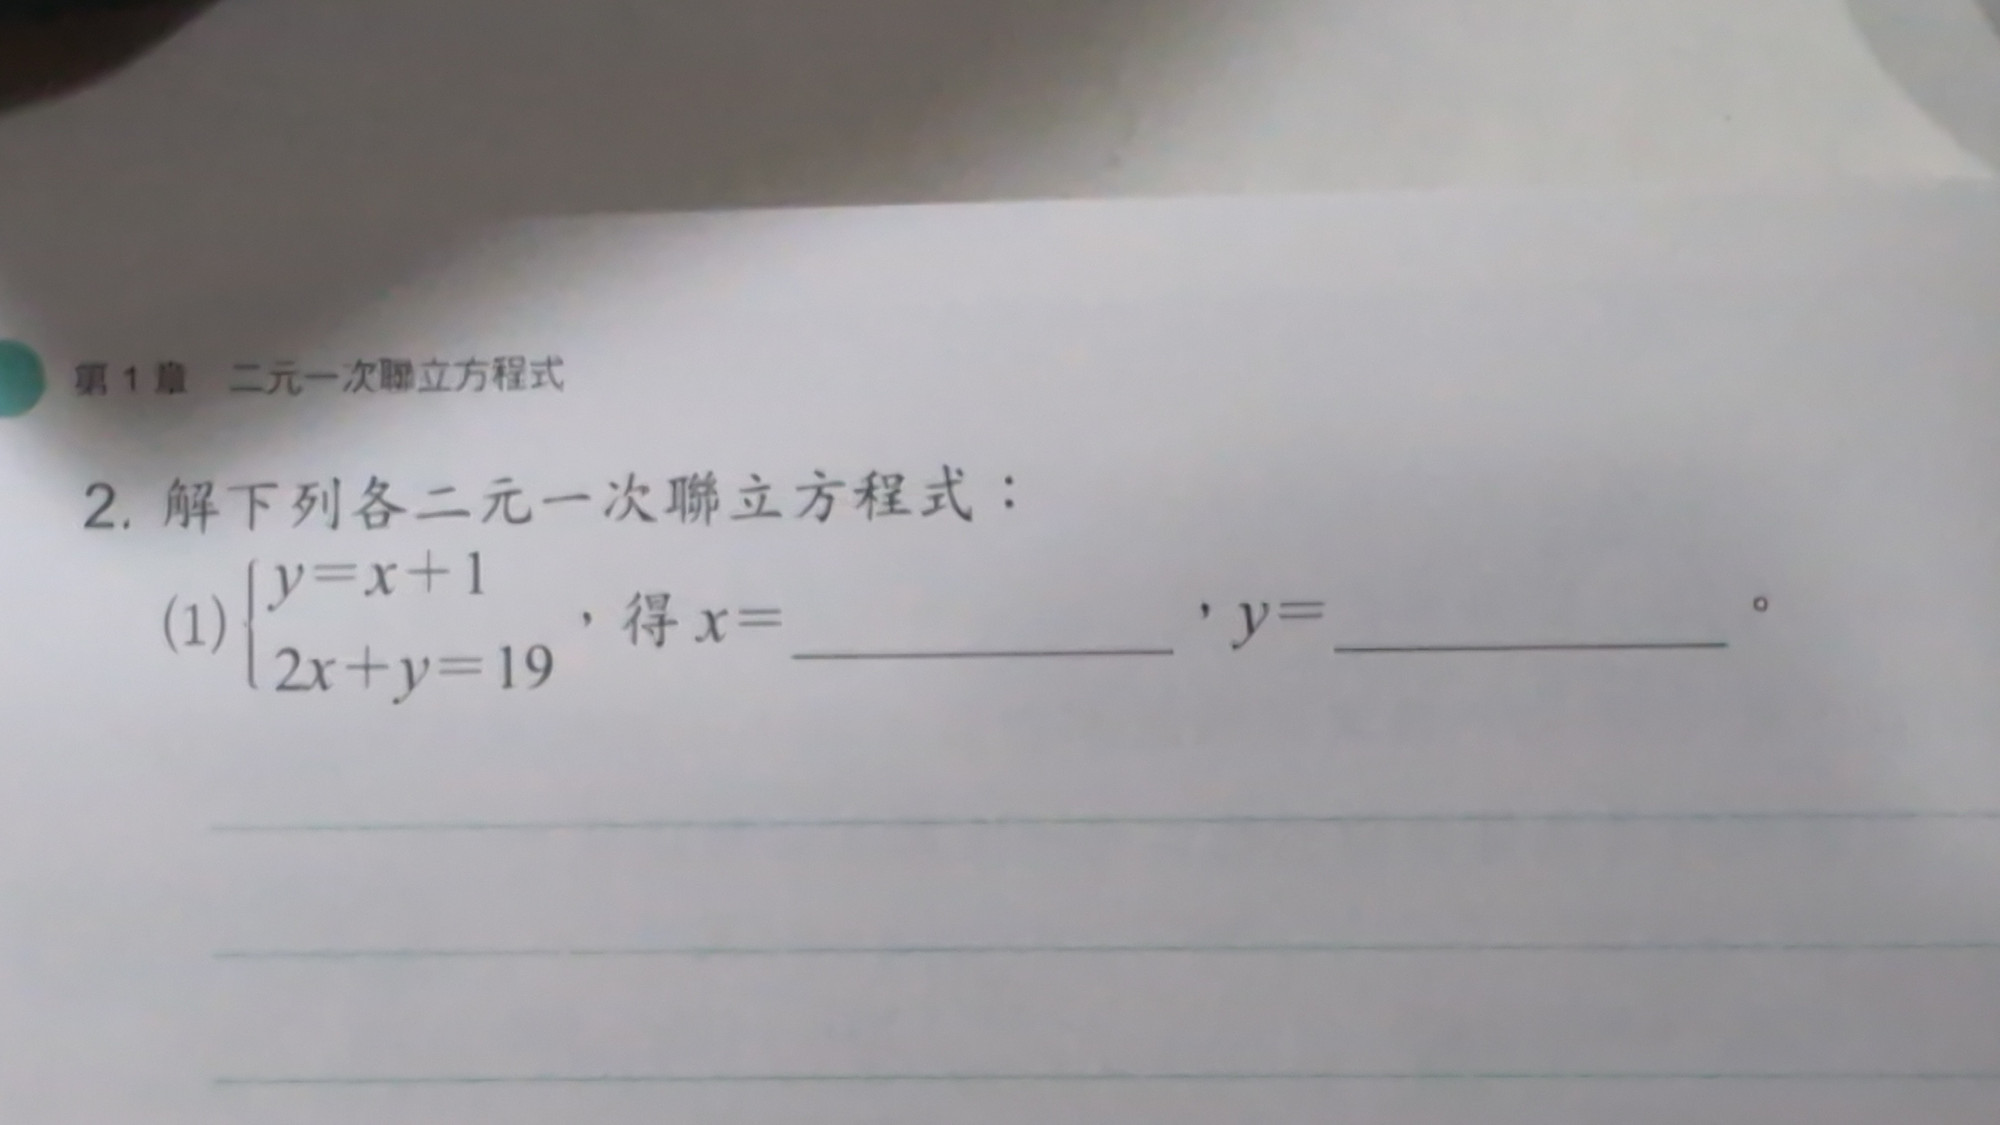 第1章 二元一次聯立方程式
2. 解下列各二元一次聯立方程式：
(1) { y=x+1
2x+y=19 ，得 x=__________ ，y=__________ 。